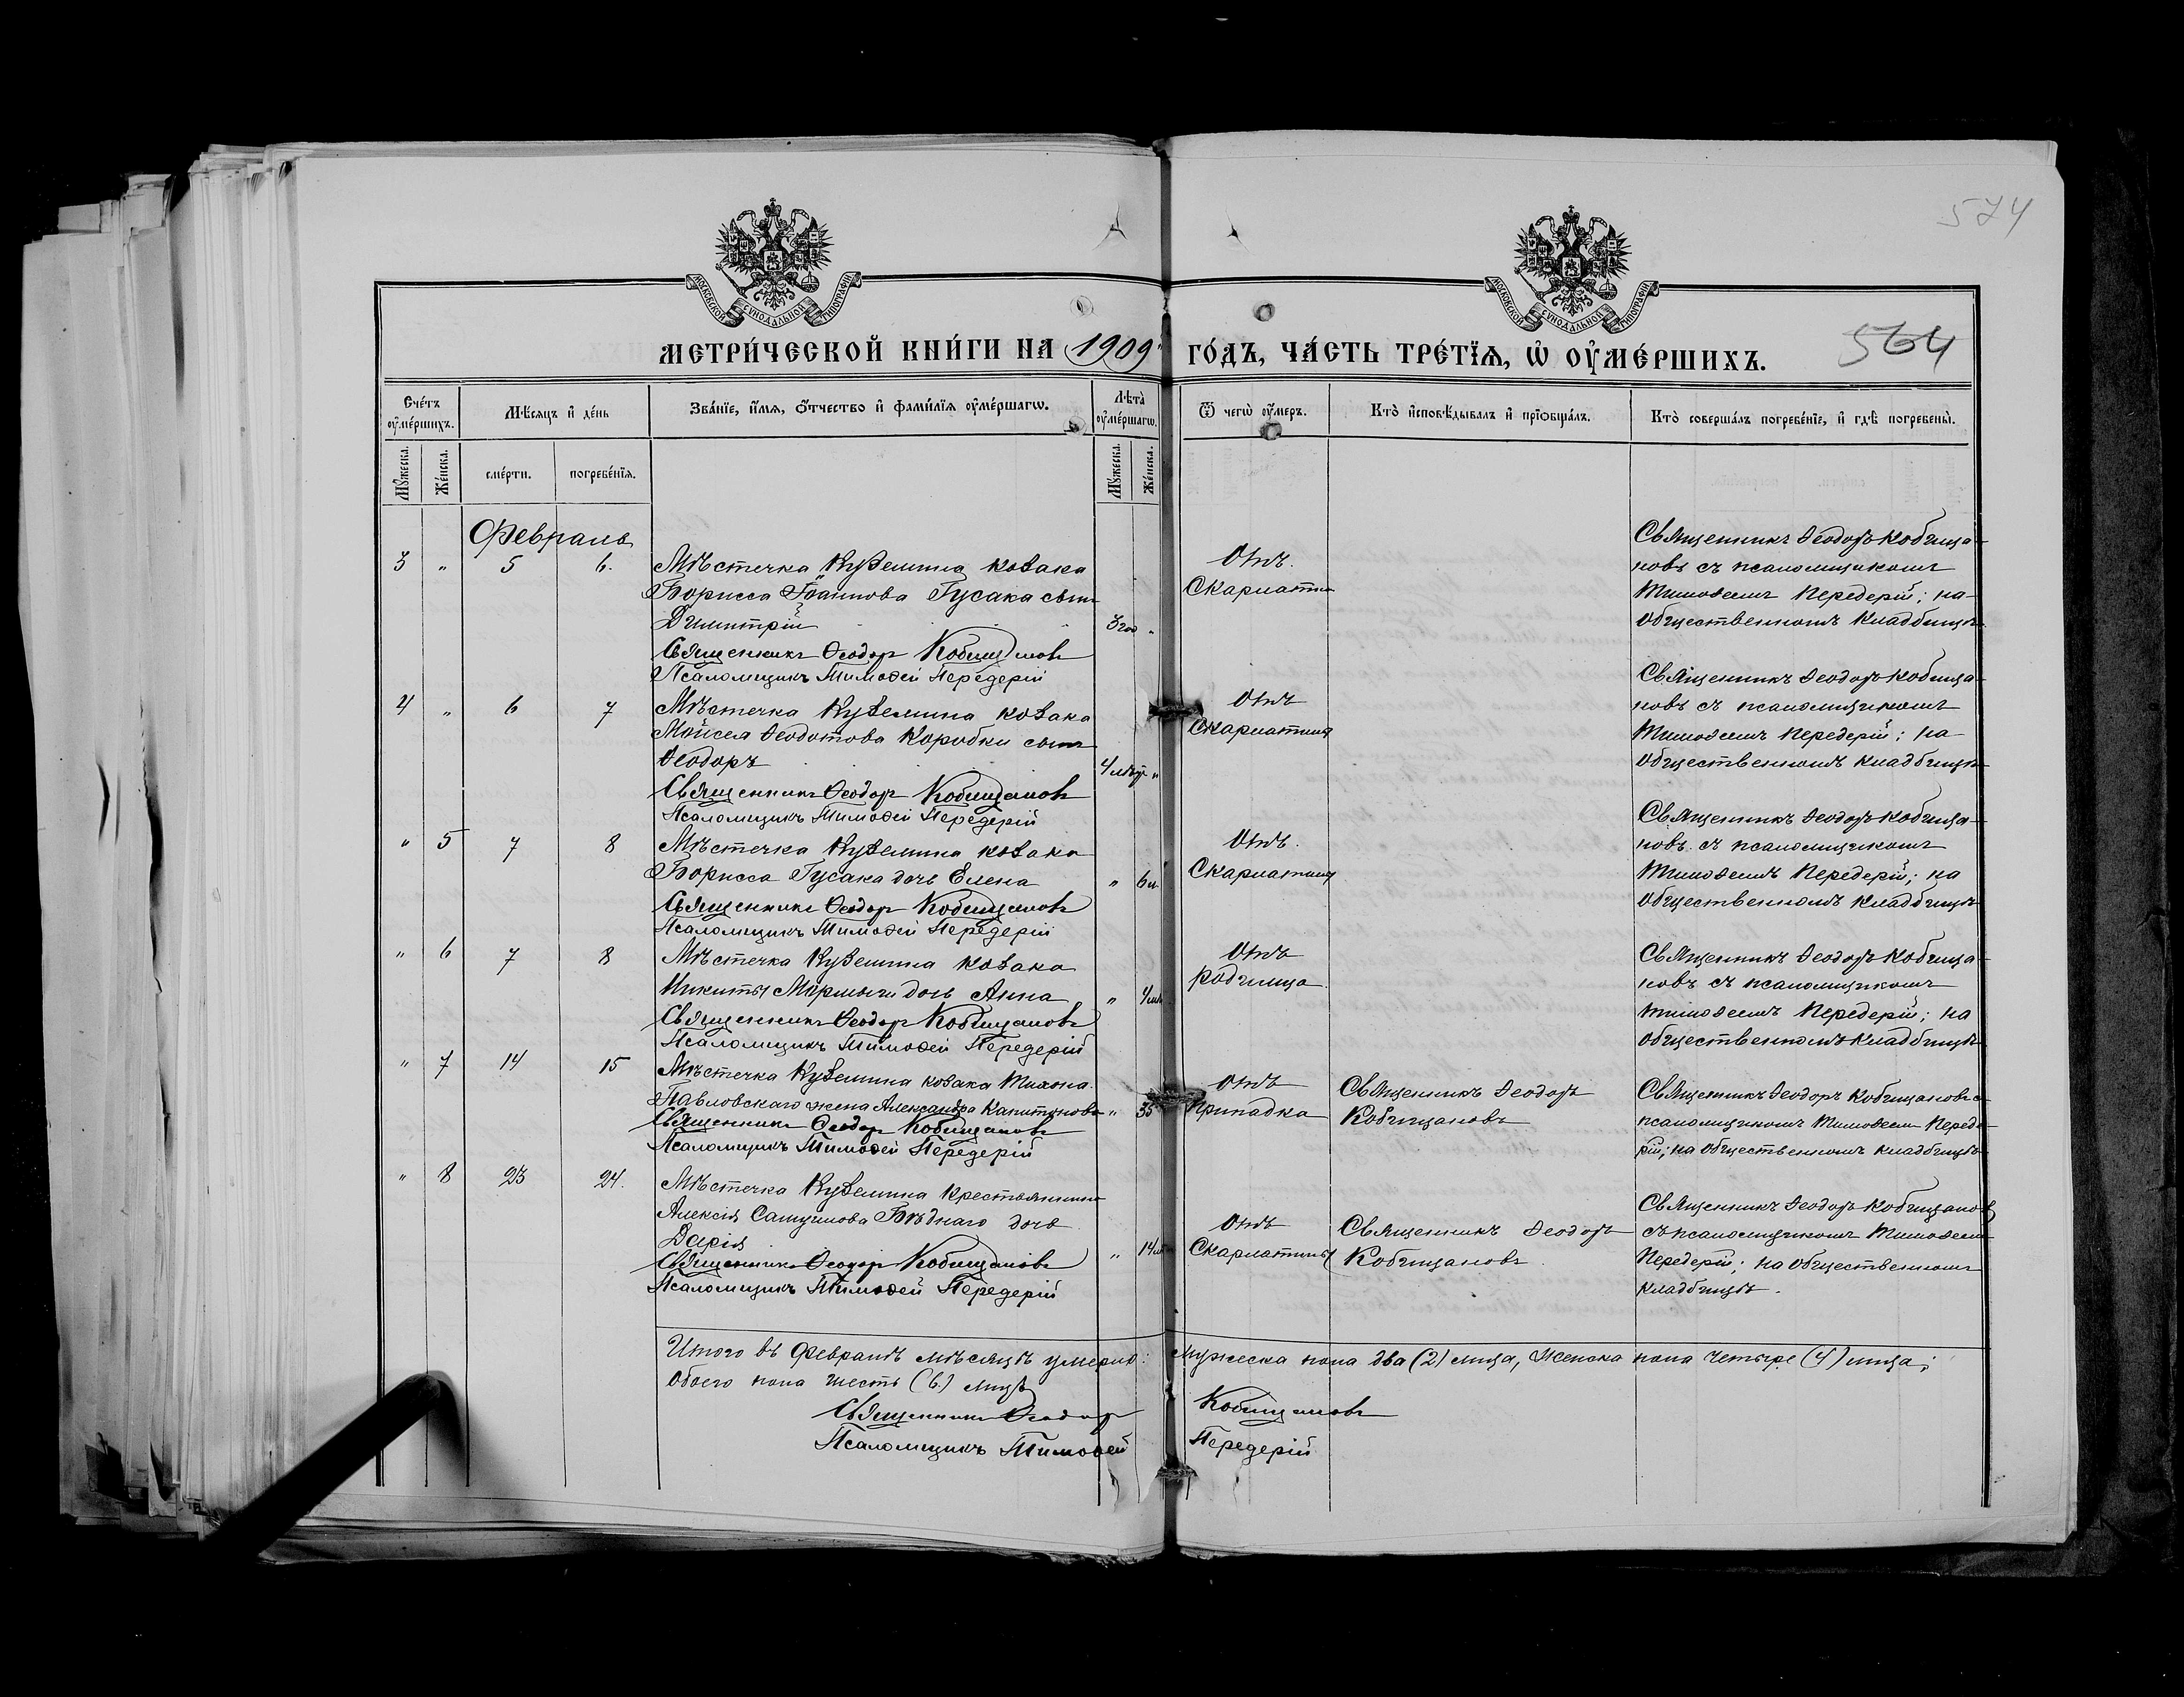 574
МОСКОВСКОЙ СУНОДАЛЬНОЙ ТИПОГРАФІИ
МОСКОВСКОЙ СУНОДАЛЬНОЙ ТИПОГРАФІИ
МЕТРИ́ЧЕСКОЙ КНИ́ГИ НА 1909 ГО́ДЪ, ЧА́СТЬ ТРЕ́ТЇѦ, Ѡ҆ ОУ҆МЕ́РШИХЪ.
564
Сче́тъ оу҆ме́ршихъ.
Мѣ́сѧцъ и҆ де́нь
Зва́нїе, и҆́мѧ, ѻ҆́тчество и҆ фами́лїѧ оу҆ме́ршагѡ.
Лѣ́та оу҆ме́ршагѡ.
Ѿ чегѡ̀ оу҆́меръ.
Кто̀ и҆сповѣ́дывалъ и҆ прїѡбща́лъ.
Кто̀ соверша́лъ погребе́нїе, и҆ гдѣ̀ погребены̀.
Мꙋ́жеска. Же́нска. сме́рти. погребе́нїѧ. Мꙋ́жеска. Же́нска.
Февраль
3 " 5 6.
Мѣстечка Куземина козака
Борисса Іоаннова Гусака сынъ
Димитрій 3 год "
Священникъ Ѳеодоръ Кобищановъ
Псаломщикъ Тимоѳей Передерій
Отъ
Скарлатины
Священникъ Ѳеодоръ Кобища-
новъ съ псаломщикомъ
Тимоѳеемъ Передерій; на
общественномъ кладбищѣ
4 " 6 7
Мѣстечка Куземина козака
Моисея Ѳеодотова Коробки сынъ
Ѳеодоръ 4 "
Священникъ Ѳеодоръ Кобищановъ
Псаломщикъ Тимоѳей Передерій
Отъ
Скарлатины
Священникъ Ѳеодоръ Кобища-
новъ съ псаломщикомъ
Тимоѳеемъ Передерій; на
общественномъ кладбищѣ
" 5 7 8
Мѣстечка Куземина козака
Борисса Гусака дочь Елена " 6
Священникъ Ѳеодоръ Кобищановъ
Псаломщикъ Тимоѳей Передерій
Отъ
Скарлатины
Священникъ Ѳеодоръ Кобища-
новъ съ псаломщикомъ
Тимоѳеемъ Передерій; на
общественномъ кладбищѣ
" 6 7 8
Мѣстечка Куземина козака
Никиты дочь Анна " 4
Священникъ Ѳеодоръ Кобищановъ
Псаломщикъ Тимоѳей Передерій
Отъ
родимца
Священникъ Ѳеодоръ Кобища-
новъ съ псаломщикомъ
Тимоѳеемъ Передерій; на
общественномъ кладбищѣ
" 7 14 15
Мѣстечка Куземина козака Тихона
Павловскаго жена Александра Капитонова " 35
Священникъ Ѳеодоръ Кобищановъ
Псаломщикъ Тимоѳей Передерій
Отъ
припадка
Священникъ Ѳеодоръ
Кобищановъ
Священникъ Ѳеодоръ Кобищановъ с
псаломщикомъ Тимоѳеем Переде-
рій; на общественномъ кладбищѣ
" 8 23 24.
Мѣстечка Куземина крестьянина
Алексія Бѣднаго дочь
Дарія " 14
Священникъ Ѳеодоръ Кобищановъ
Псаломщикъ Тимоѳей Передерій
Отъ
Скарлатины
Священникъ Ѳеодоръ
Кобищановъ
Священникъ Ѳеодоръ Кобищановъ
съ псаломщикомъ Тимоѳеем
Передерій; на общественномъ
кладбищѣ.
Итого въ Февралѣ мѣсяцѣ умерло: мужеска пола два (2) лица, женска пола четыре (4) лица;
обоего пола шесть (6) лицъ
Священникъ Ѳеодоръ Кобищановъ
Псаломщикъ Тимоѳей Передерій